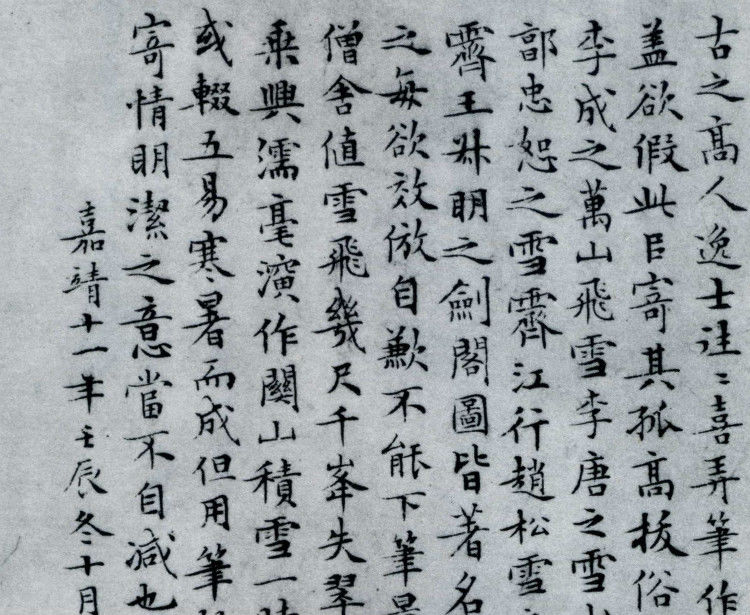 古之高人逸士往〻喜弄筆作
蓋欲假此㠯寄其孤高拔俗
李成之萬山飛雪李唐之雪山
郭忠恕之雪霽江行趙松雪
霽王叔明之劍閣圖皆著名
之每欲效倣自歉不能下筆曩
僧舍值雪飛幾尺千峯失翠
乘興濡毫演作關山積雪一時
或輟五易寒暑而成但用筆
寄情明潔之意當不自減也
嘉靖十一年壬辰冬十月